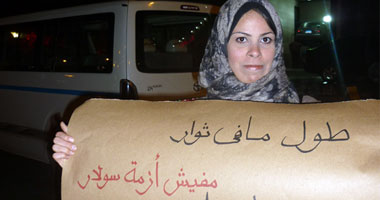 طول ما فى ثوار
مفيش أزمة سولار